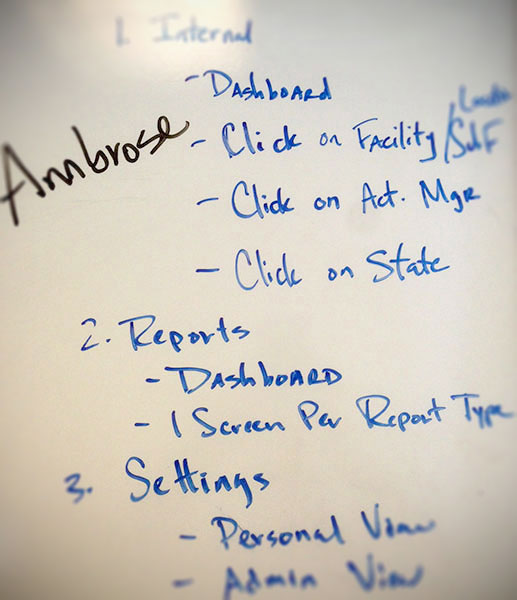 1. Internal
- Dashboard
Ambrose
- Click on Facility/SubF
- Click on Act. Mgr
- Click on State
2. Reports
- Dashboard
- 1 Screen Per Report Type
3. Settings
- Personal View
- Admin View